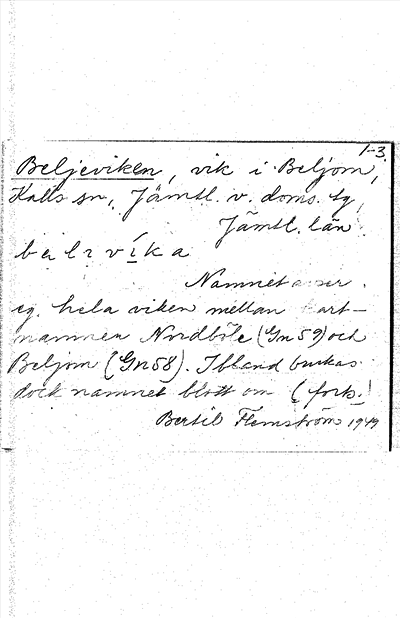 1-3.
Beljeviken, vik i Beljom,
Kalls sn, Jämtl. v. doms. tg,
Jämtl. län
belzvíka
Namnet avser
eg. hela viken mellan kart-
namnen Nordböle (Gm 59) och
Beljom (Gm 58). Ibland brukas
dock namnet blott om (forts.)
Bertil Flemström 1949